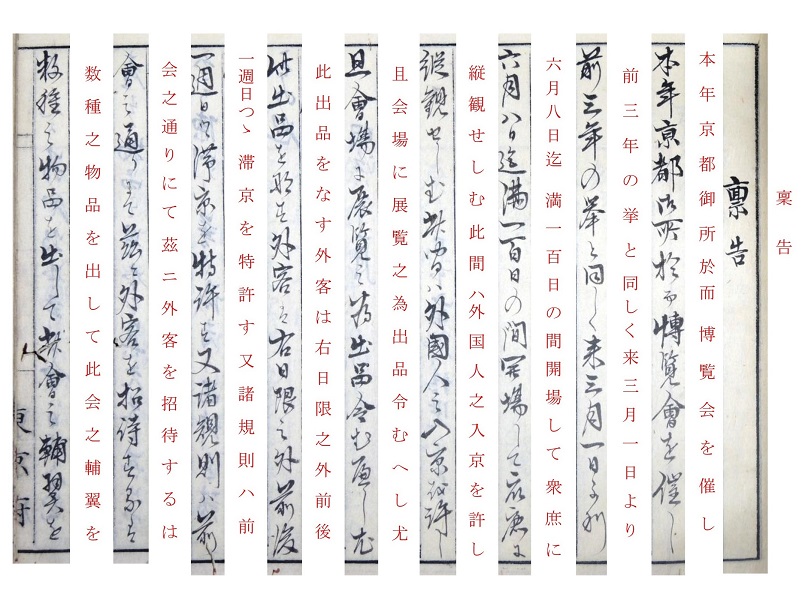 稟告
稟告
本年京都御所於而 博覧会を催し
本年京都御所於而博覧會を催し
前三年の挙と同しく来三月一日より
前三年の挙と同しく来三月一日より
六月八日迄 満一百日の間開場して衆庶に
六月八日迄満一百日の間開場して衆庶に
縦観せしむ此間ハ外国人之入京を許し
縦観せしむ此間ハ外國人之入京を許し
且会場に展覧之為出品令むへし尤
且會場に展覧之為出品令むへし尤
此出品をなす外客は右日限之外前後
此出品をなす外客は右日限之外前後
一週日つゝ滞京を特許す又諸規則ハ前
一週日つゝ滞京を特許す又諸規則ハ前
会之通りにて茲ニ外客を招待するは
會之通りにて茲ニ外客を招待するは
数種之物品を出して此会之輔翼を
数種之物品を出して此會之輔翼を